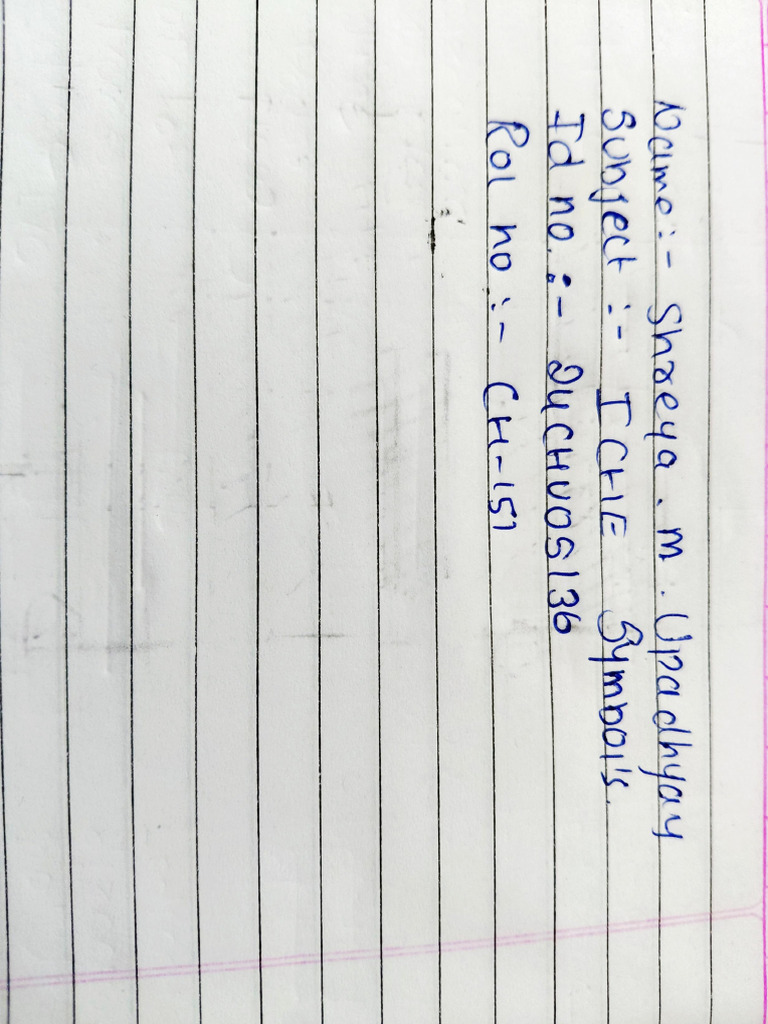 Name:- Shreya . m . Upadhyay
Subject :- ICHE Symbol's.
Id no. :- 24CHUOS136
Rol no :- CH-151